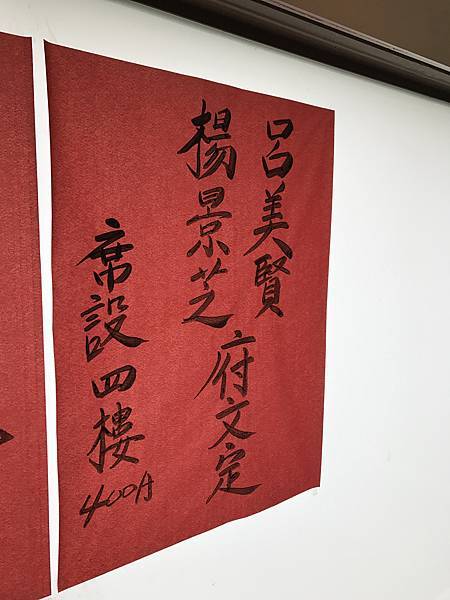 呂美賢
楊景芝
府文定
席設四樓
400A